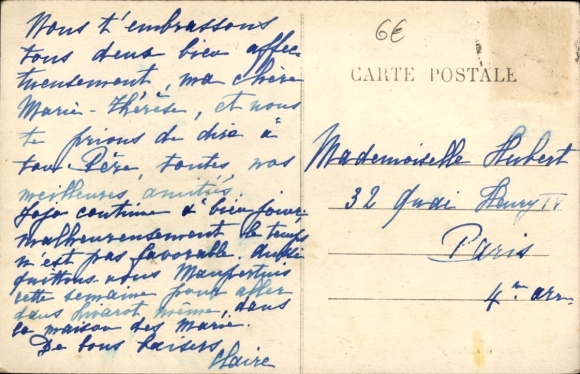 6€
CARTE POSTALE
Nous t'embrassons
tous deux bien affec-
tueusement, ma chère
Marie-Thérèse, et nous
te prions de dire à
ton Père, toutes nos
meilleures amitiés.
Jojo continue à bien jouir
malheureusement le temps
n'est pas favorable. Aussi
quittons-nous Maupertuis
cette semaine pour aller
dans même, dans
la maison des Marie.
De bons baisers
Claire
Mademoiselle Hubert
32 Quai Henry IV
Paris
4me arr.